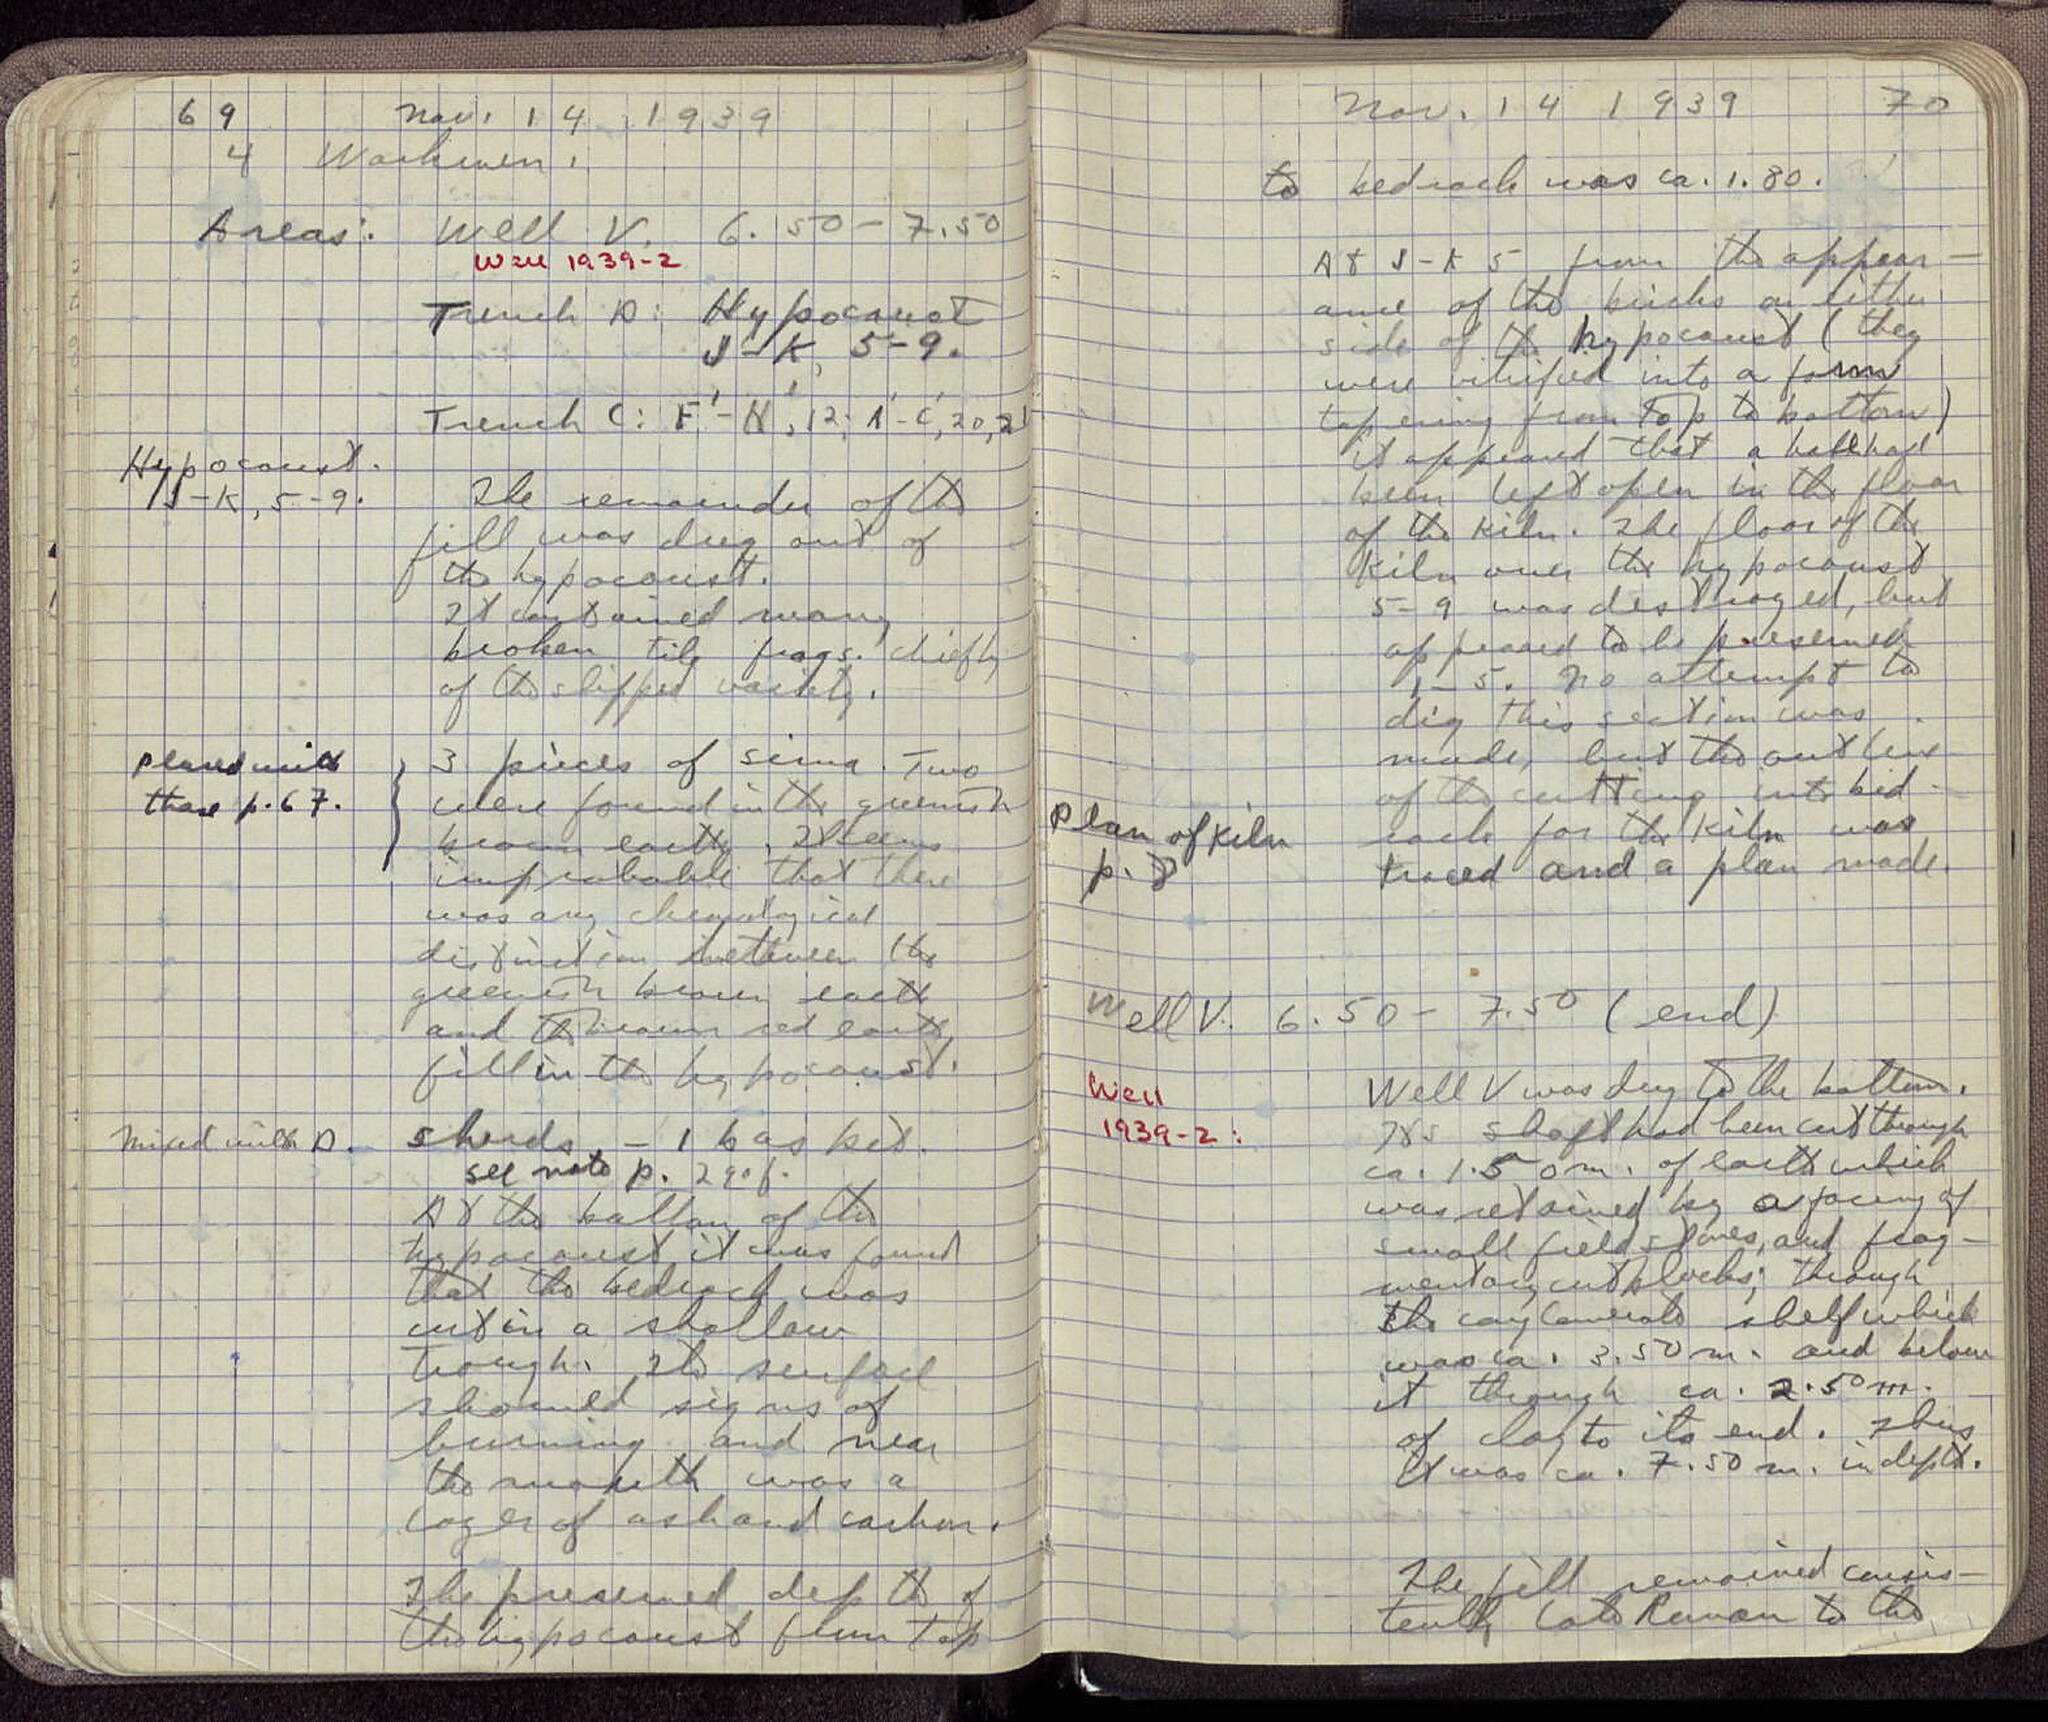 69 Nov. 14 1939
4 Workmen.
Areas: Well V. 6.50-7.50
Well 1939-2
Trench D: Hypocaust
J-K, 5-9.
Trench C: F'-H', 12; A'-C', 20, 21
Hypocaust.
J-K, 5-9.
The remainder of the
fill was dug out of
the hypocaust.
It contained many
broken tile frags. chiefly
of the slipped variety.
placed with
those p. 67.
3 pieces of sima. Two
were found in the greenish
brown earth. It seems
improbable that there
was any chronological
distinction between the
greenish brown earth
and the brown red earth
fill in the hypocaust.
Mixed with D.
Sherds - 1 basket.
see note p. 290f.
At the bottom of the
hypocaust it was found
that the bedrock was
cut in a shallow
trough. Its surface
showed signs of
burning and near
the mouth was a
layer of ash and carbon.
The preserved depth of
the hypocaust from top
Nov. 14 1939 70
to bedrock was ca. 1.80.
At J-K 5 from the appear-
ance of the bricks on either
side of the hypocaust (they
were vitrified into a form
tapering from top to bottom)
it appeared that a hole had
been left open in the floor
of the kiln. The floor of the
kiln over the hypocaust
5-9 was destroyed, but
appeared to be preserved
1-5. No attempt to
dig this section was
made, but the outline
of the cutting into bed-
rock for the kiln was
traced and a plan made.
Plan of Kiln
p. 8
Well V. 6.50 - 7.50 (end)
Well
1939-2:
Well V was dug to the bottom.
Its shaft had been cut through
ca. 1.50 m. of earth which
was retained by a facing of
small field stones, and frag-
mentary cut blocks; through
the conglomerate shelf which
was ca. 3.50 m. and below
it through ca. 2.50 m.
of clay to its end. Thus
it was ca. 7.50 m. in depth.
The fill remained consis-
tently Late Roman to the